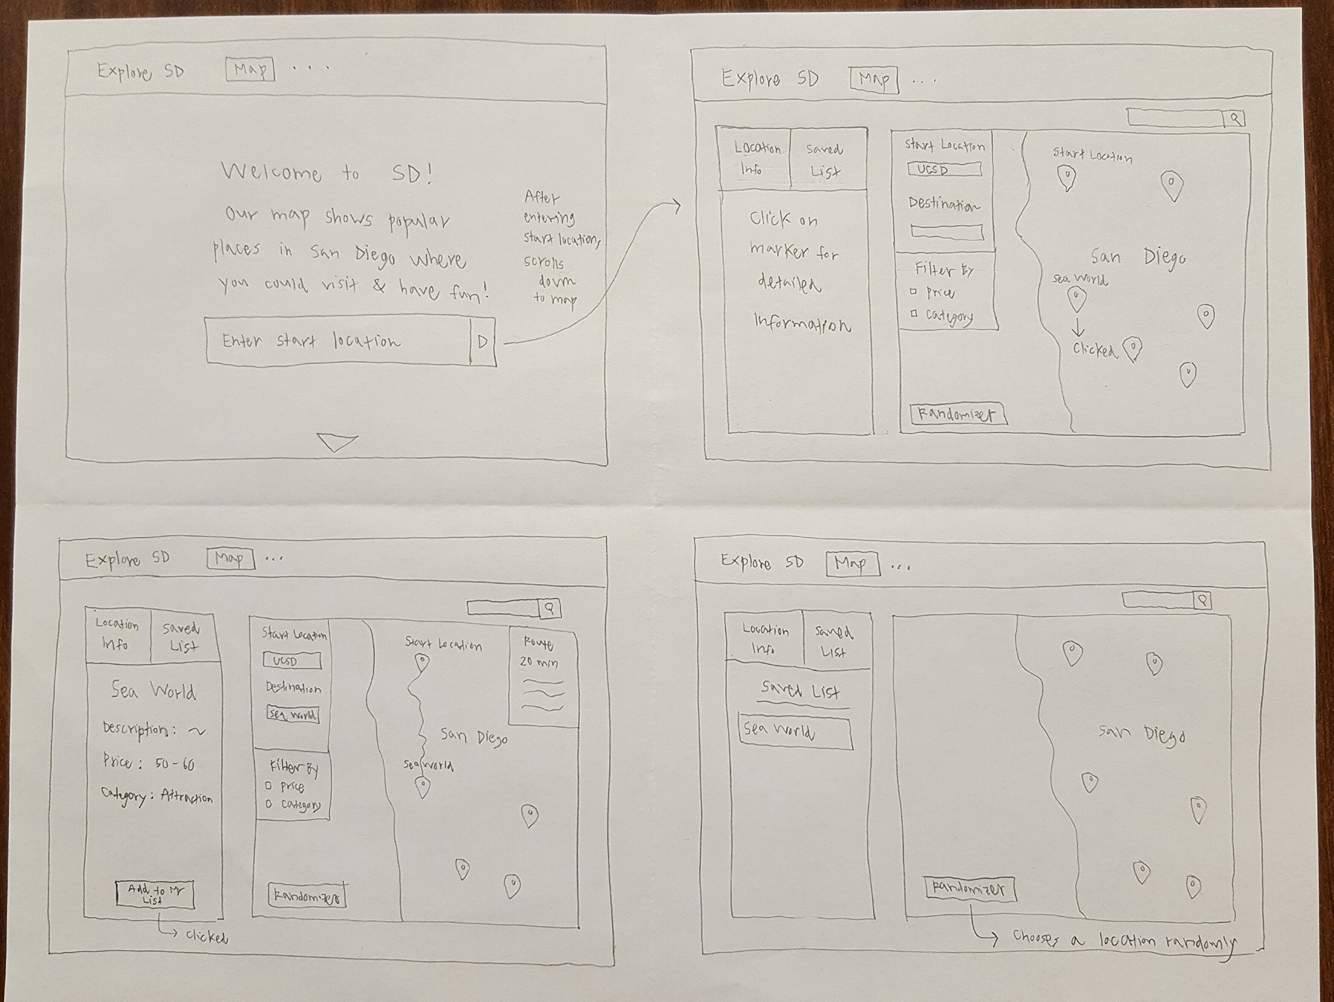 Explore SD
Map
...
Welcome to SD!
Our map shows popular
places in San Diego where
you could visit & have fun!
Enter start location
After
entering
start location,
scrolls
down
to map
Explore SD
Map
...
Location
Info
Saved
List
Click on
marker for
detailed
information
Start Location
UCSD
Destination
Filter By
Price
Category
Randomizer
Start Location
San Diego
Sea World
Clicked
Explore SD
Map
...
Location
Info
Saved
List
Sea World
Description: ~
Price: 50-60
Category: Attraction
Add to My
List
Clicked
Start Location
UCSD
Destination
Sea World
Filter By
Price
Category
Randomizer
Start Location
San Diego
Sea World
Route
20 min
Explore SD
Map
...
Location
Info
Saved
List
Saved List
Sea World
San Diego
Randomizer
Chooses a location randomly